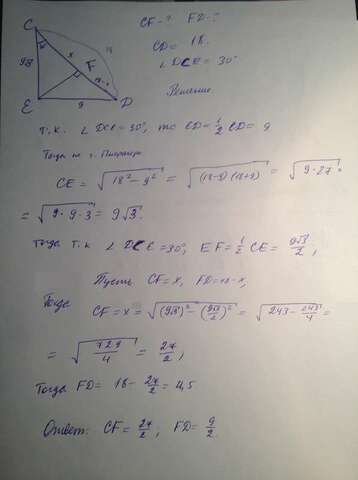 CF-? FD-?
C
18
x
9√3
F
18-x
E
9
D
CD= 18.
∠ DCE = 30°
Решение
Т.к. ∠ DCE = 30°, то ED = 1/2 CD = 9
Тогда по т. Пифагора
CE = √(18² - 9²) = √((18-9)(18+9)) = √(9·27) =
= √(9·9·3) = 9√3.
Тогда т.к ∠ DCE = 30°, EF = 1/2 CE = 9√3/2;
Пусть CF = x, FD = 18-x,
Тогда
CF = x = √((9√3)² - (9√3/2)²) = √(243 - 243/4) =
= √(729/4) = 27/2;
Тогда FD = 18 - 27/2 = 4,5
Ответ: CF = 27/2; FD = 9/2.